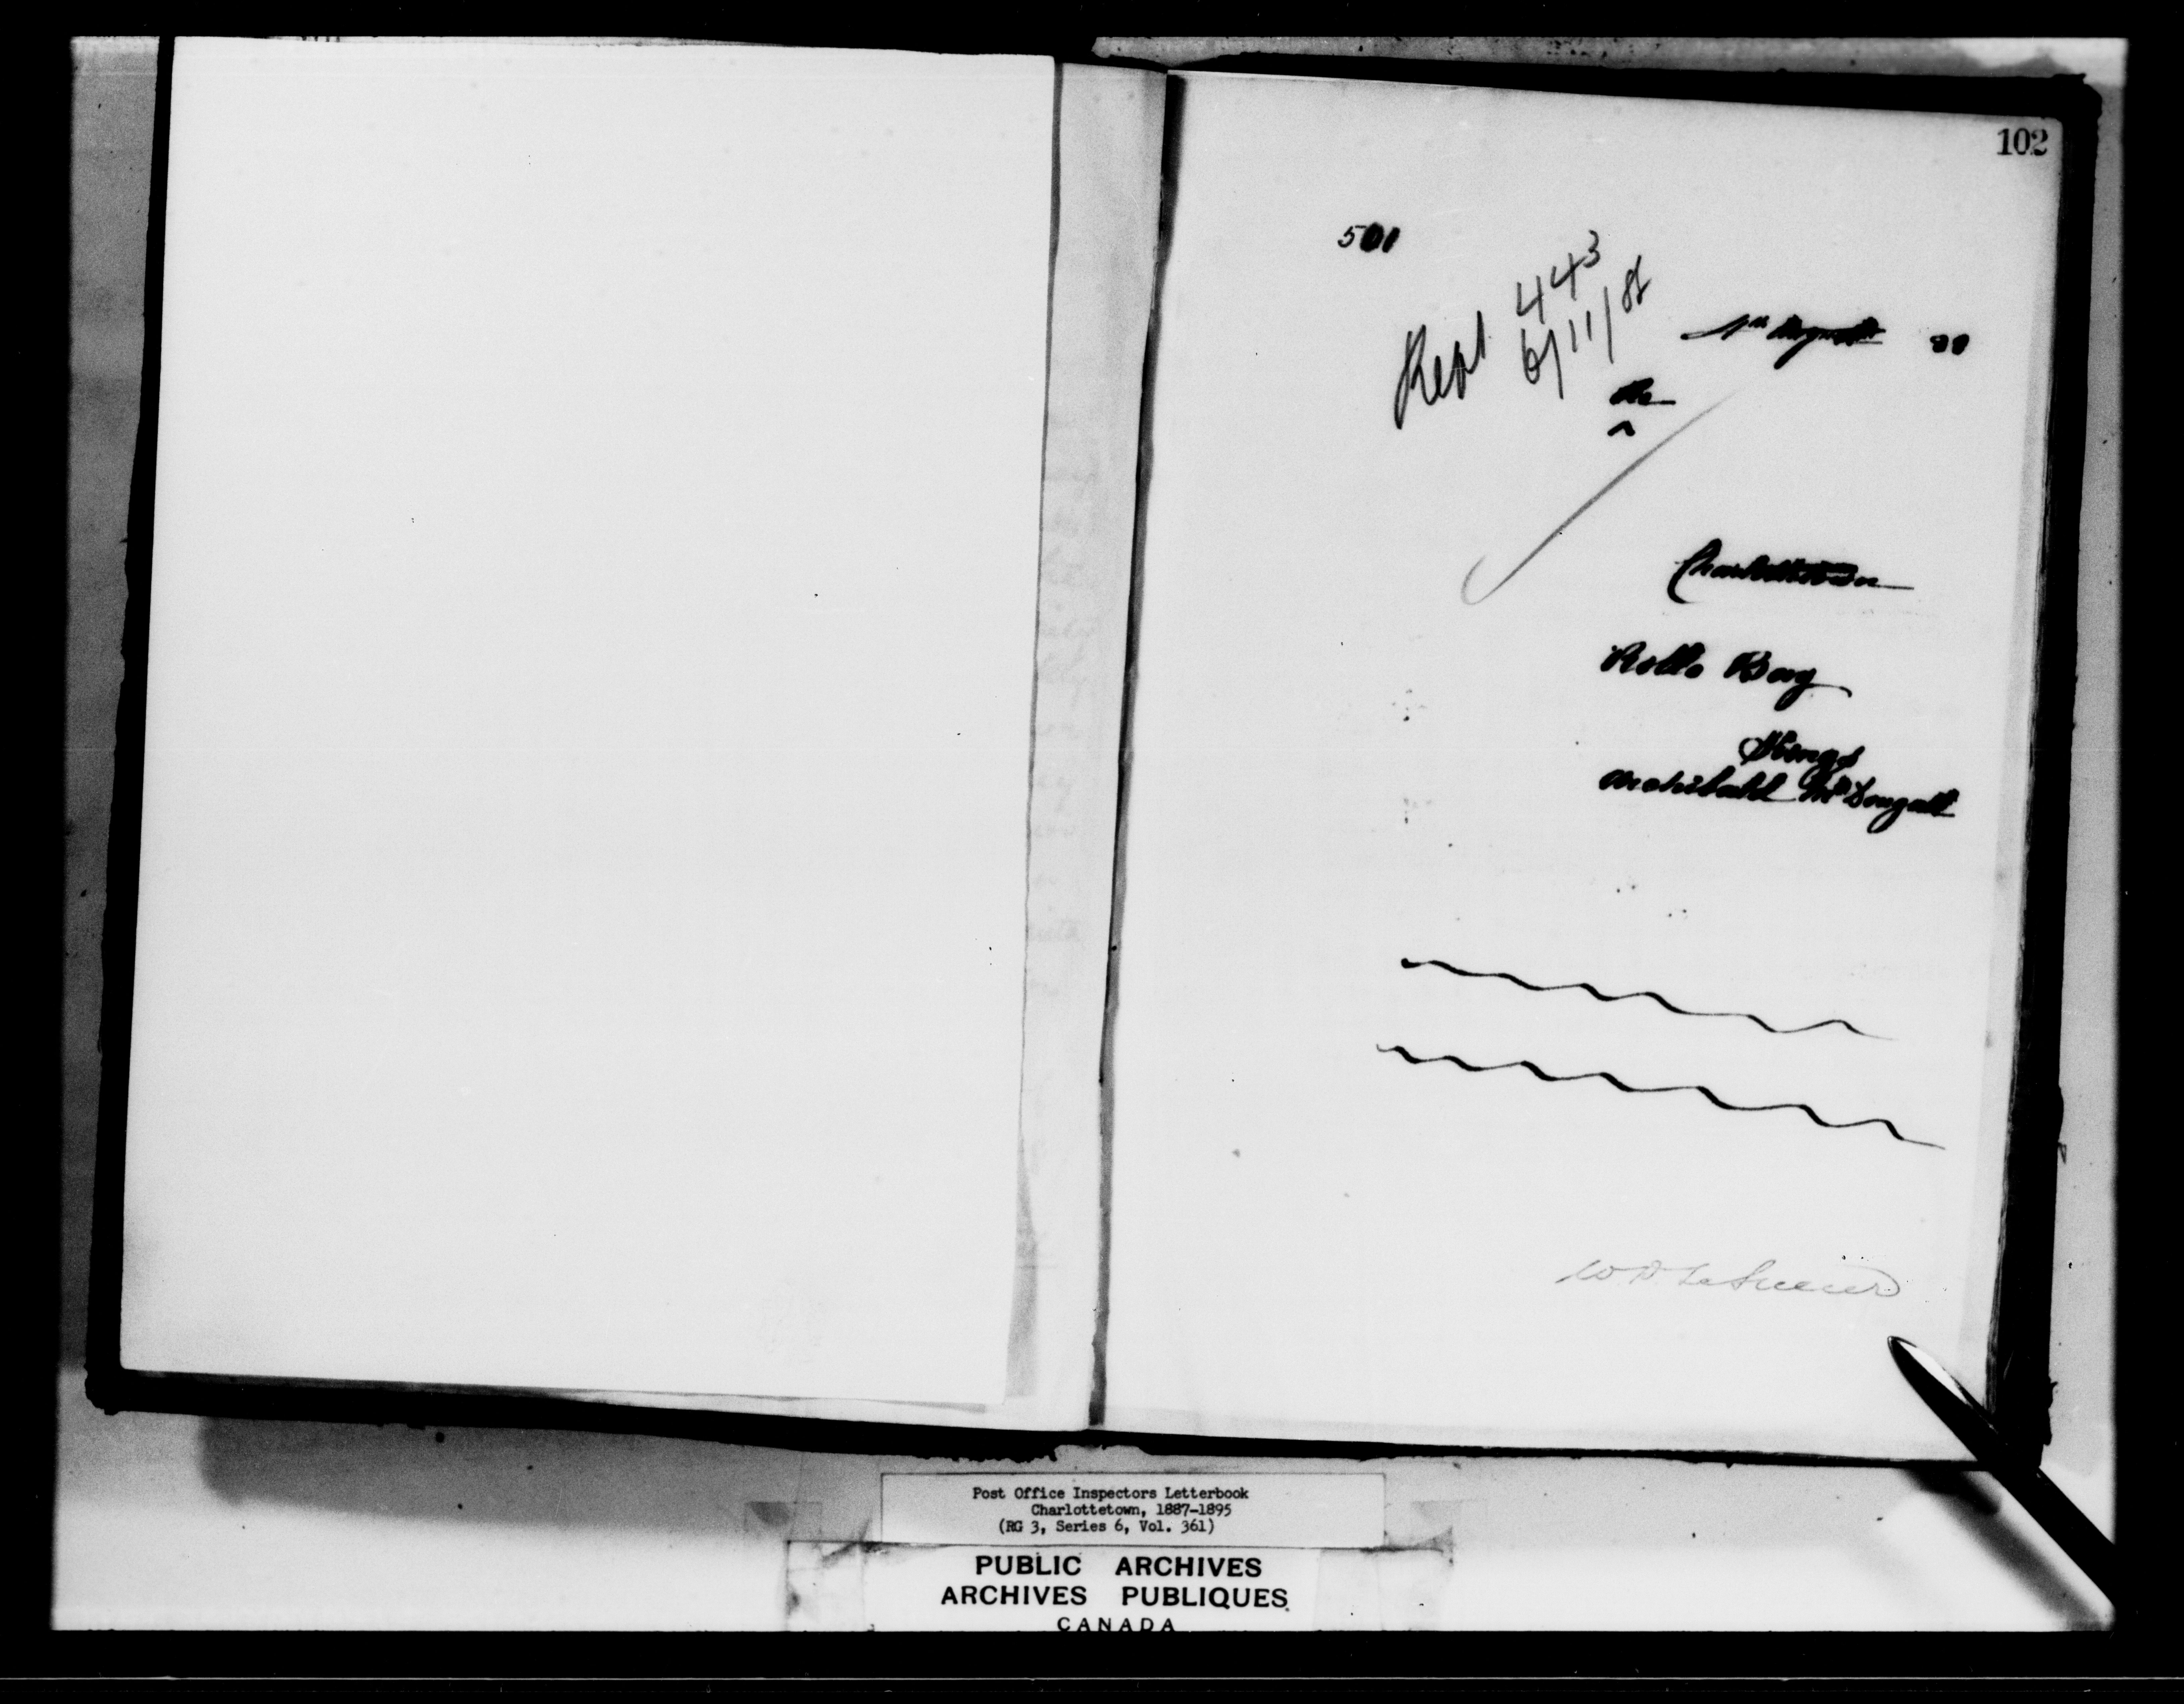 102
501
443
Rept 6/11/88
1st August 88
the
^
Charlottetown
Rollo Bay
Kings
Archibald McDougall
W D LeSueur
Post Office Inspectors Letterbook
Charlottetown, 1887-1895
(RG 3, Series 6, Vol. 361)
PUBLIC ARCHIVES
ARCHIVES PUBLIQUES
CANADA